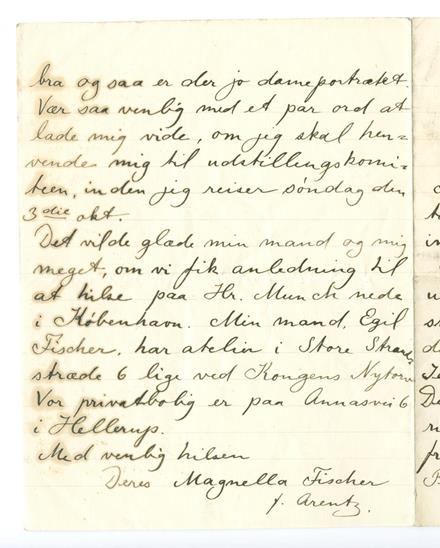 bra og saa er der jo dameportrætet.
Vær saa venlig med et par ord at
lade mig vide, om jeg skal hen=
vende mig til udstillingskomi=
teen, inden jeg reiser söndag den
3 die okt.
Det vilde glæde min mand og mig
meget, om vi fik anledning til
at hilse paa Hr. Munch nede
i København. Min mand, Egil
Fischer, har atelier i Store Strand
stræde 6 lige ved Kongens Nytorv
Vor privatbolig er paa Annasvei 6
i Hellerup.
Med venlig hilsen
Deres Magnella Fischer
f. Arentz.